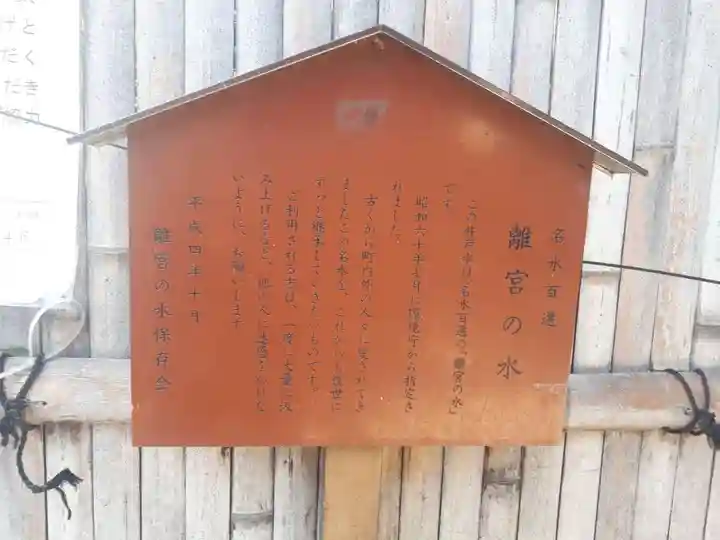 名水百選
離宮の水
この井戸水は、名水百選の、「離宮の水」
です。
昭和六十年七月に環境庁から指定さ
れました。
古くから町内外の人々に愛されてき
ましたこの名水を、これからも後世に
ずっと残していきたいものです。
ご利用される方は、一度に大量に汲
み上げるなど、他の人に迷惑をかけな
いように、お願いします
平成四年十月
離宮の水保存会